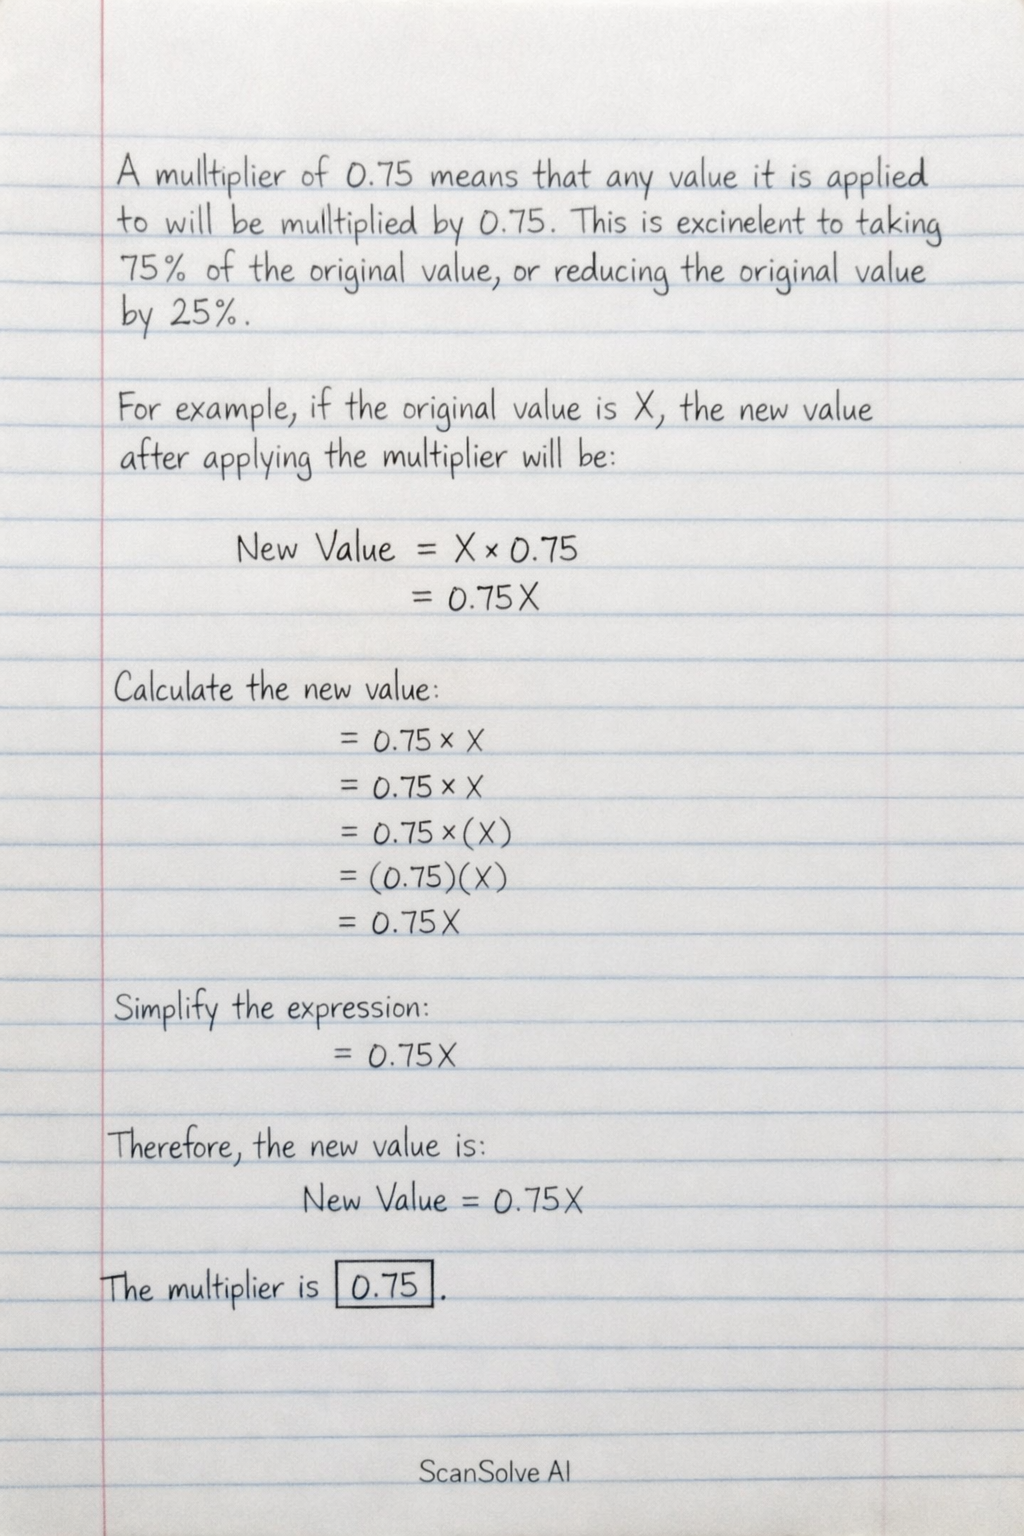 A mulltiplier of 0.75 means that any value it is applied
to will be mulltiplied by 0.75. This is excinelent to taking
75% of the original value, or reducing the original value
by 25%.
For example, if the original value is X, the new value
after applying the multiplier will be:
New Value = X × 0.75
= 0.75X
Calculate the new value:
= 0.75 × X
= 0.75 × X
= 0.75 ×(X)
= (0.75)(X)
= 0.75X
Simplify the expression:
= 0.75X
Therefore, the new value is:
New Value = 0.75X
The multiplier is 0.75.
ScanSolve AI